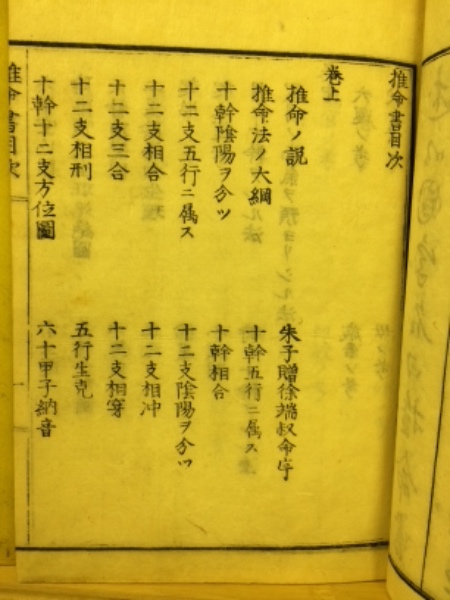 推命書目次
卷上
推命ノ説
朱子贈徐端叔命序
推命法ノ大綱
十幹五行ニ属ス
十幹陰陽ヲ分ツ
十幹相合
十二支五行ニ属ス
十二支陰陽ヲ分ツ
十二支相合
十二支相冲
十二支三合
十二支相穿
十二支相刑
五行生克
十幹十二支方位圖
六十甲子納音
推命書目次
一